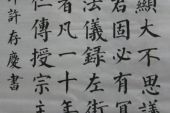 顯大不思議
君固必有冥
法儀録左街
者凡一十年
仁傳授宗主
許存慶書